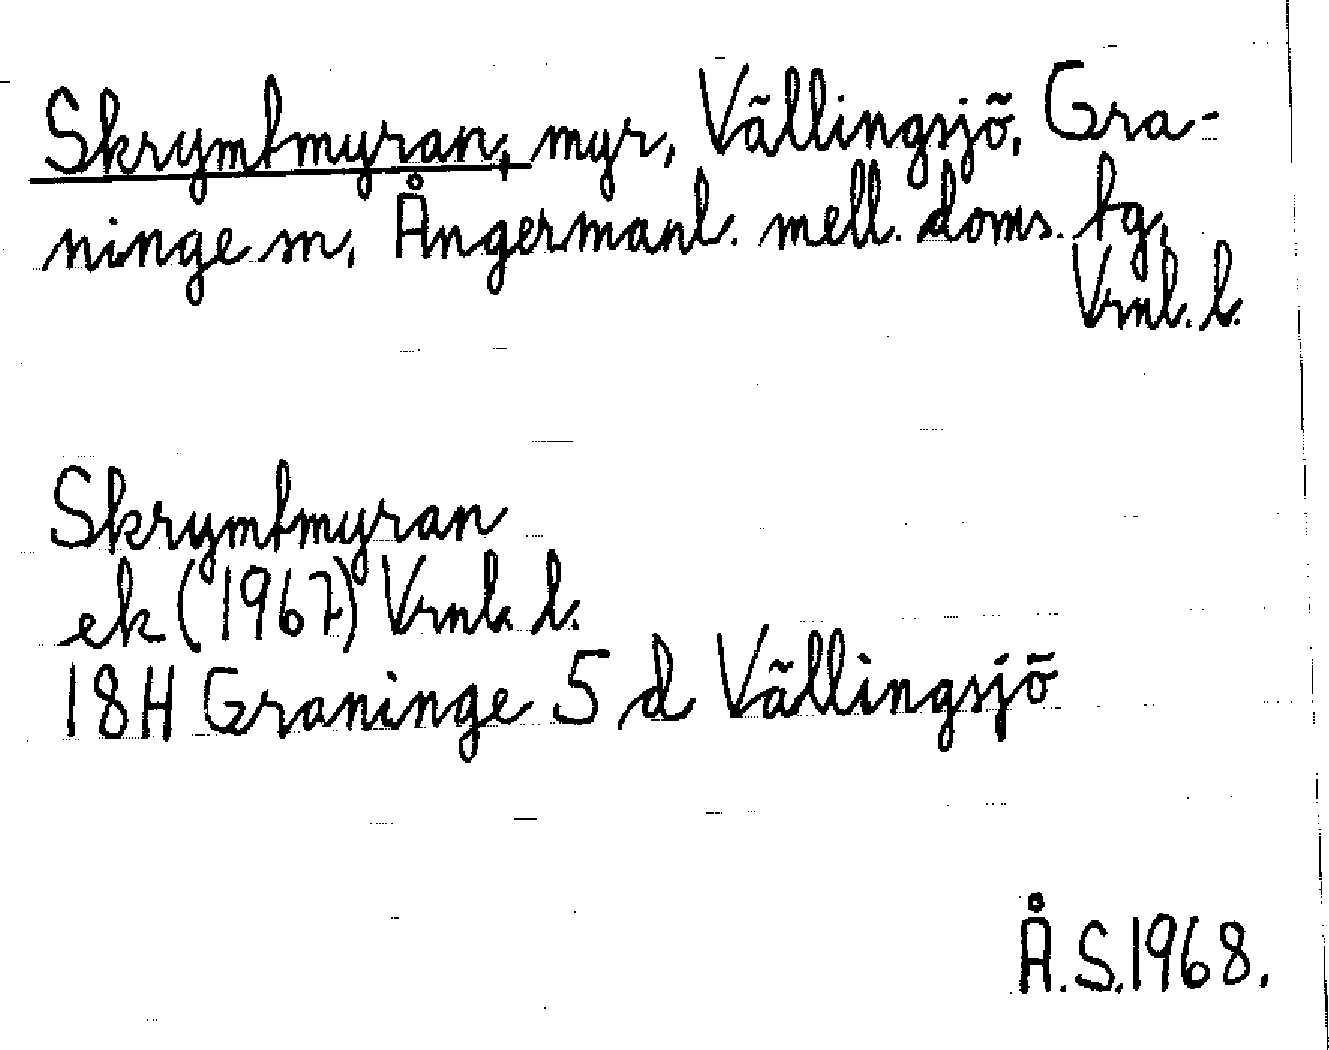 Skrymtmyran, myr, Vällingsjö, Gra-
ninge sn, Ångermanl. mell. doms. tg,
Vrnl. l.
Skrymtmyran
ek (1967) Vrnl. l.
18H Graninge 5 d Vällingsjö
Å.S.1968.